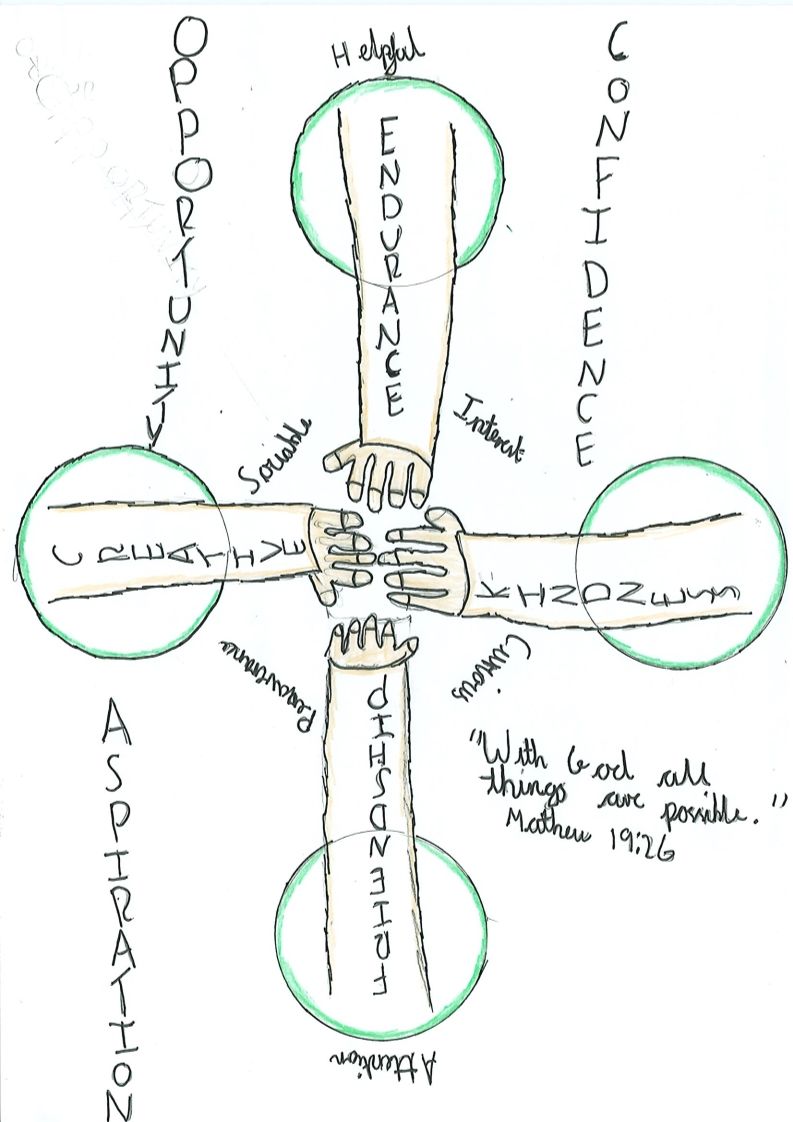 Helpful
OPPORTUNITY
CONFIDENCE
ENDURANCE
Sociable
Interest
CREATIVE
KINDNESS
Curious
FRIENDSHIP
ASPIRATION
"With God all
things are possible."
Mathew 19:26
Attention